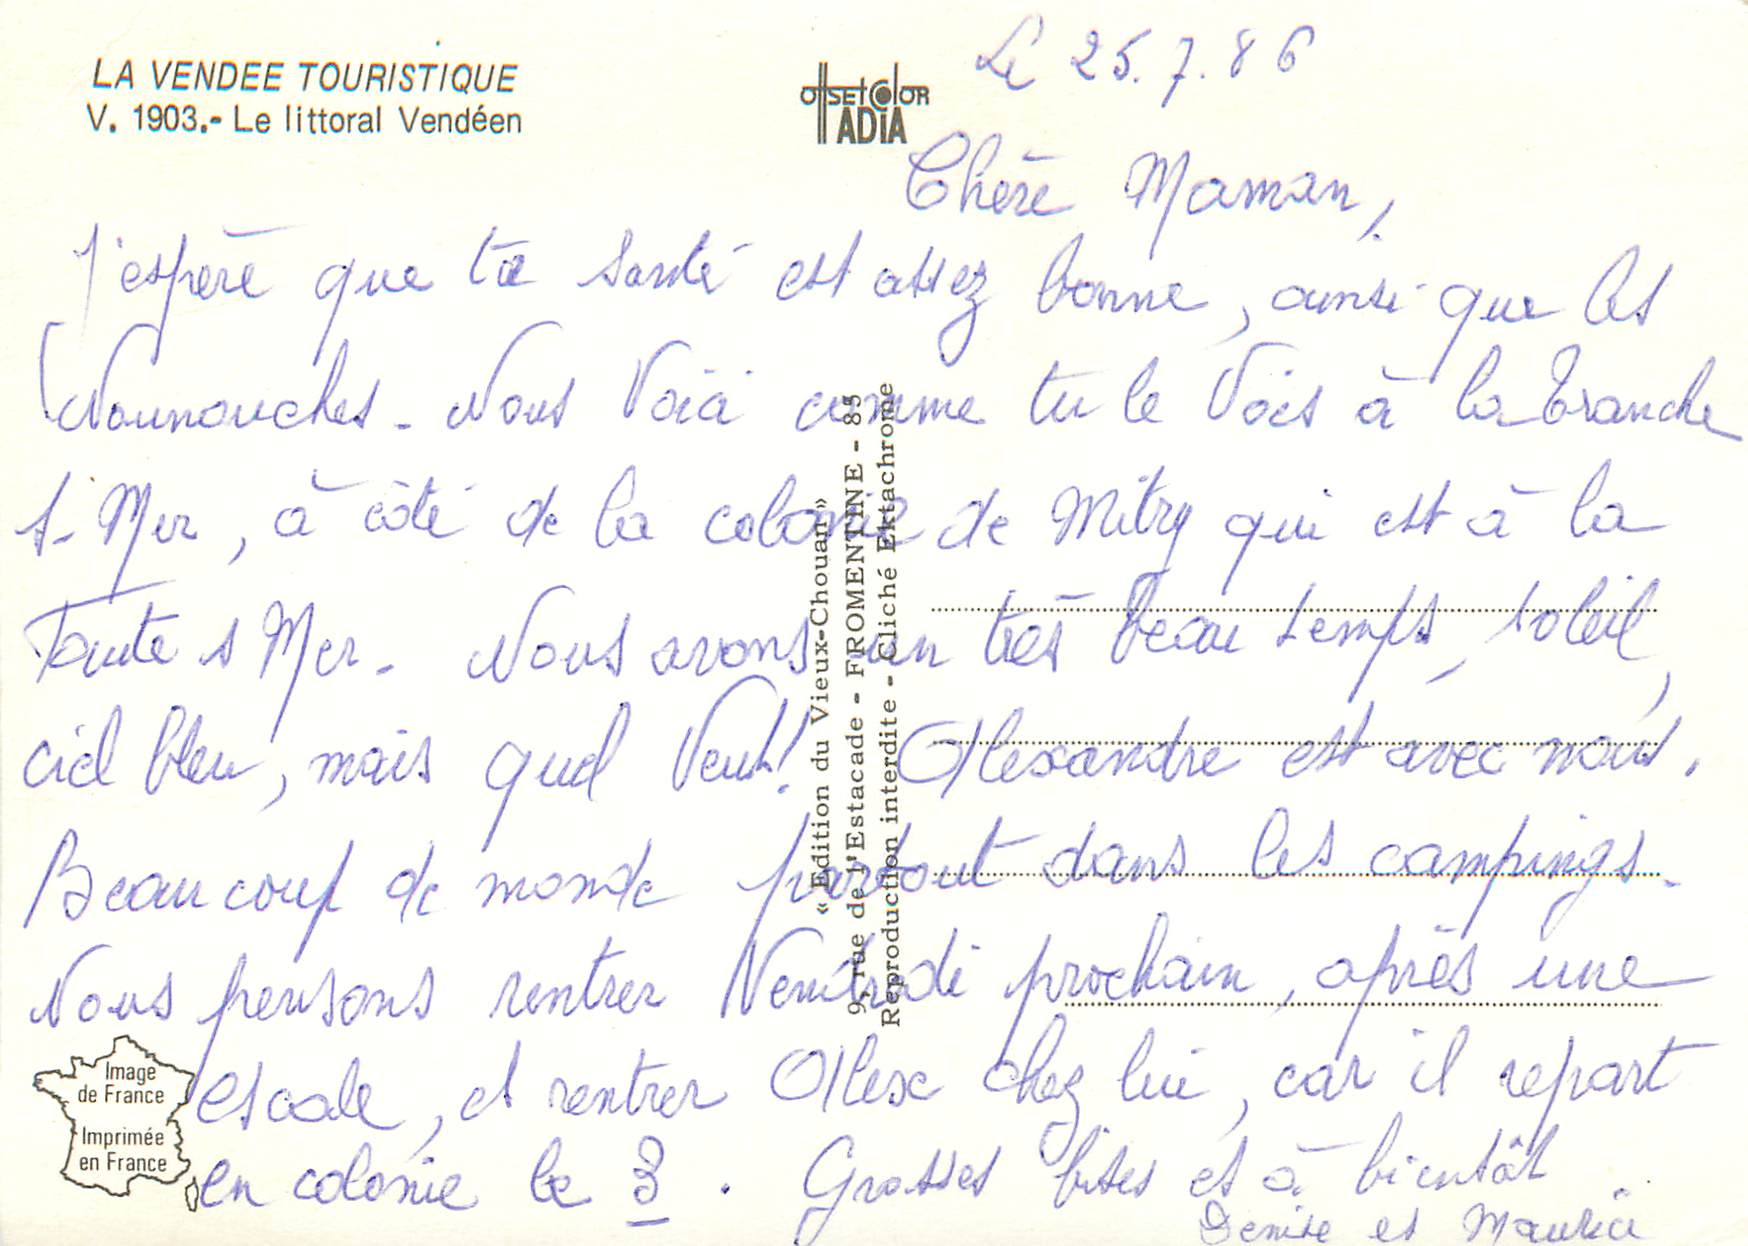 LA VENDEE TOURISTIQUE
V. 1903.- Le littoral Vendéen
offsetcolor
ADIA
Le 25.7.86
Chère Maman,
J'espère que ta santé est assez bonne, ainsi que les
Nounouches - Nous voici comme tu le vois à la Tranche
s. Mer, à côté de la colonie de Mitry qui est à la
Faute s Mer - Nous avons un très beau temps, soleil,
ciel bleu, mais quel vent! Alexandre est avec nous.
Beaucoup de monde partout dans les campings.
Nous pensons rentrer Vendredi prochain, après une
escale, et rentrer Alex chez lui, car il repart
en colonie le 3. Grosses bises et à bientôt.
Denise et Maurice
« Edition du Vieux-Chouan »
9, rue de l'Estacade - FROMENTINE - 85
Reproduction interdite - Cliché Ektachrome
Image
de France
Imprimée
en France